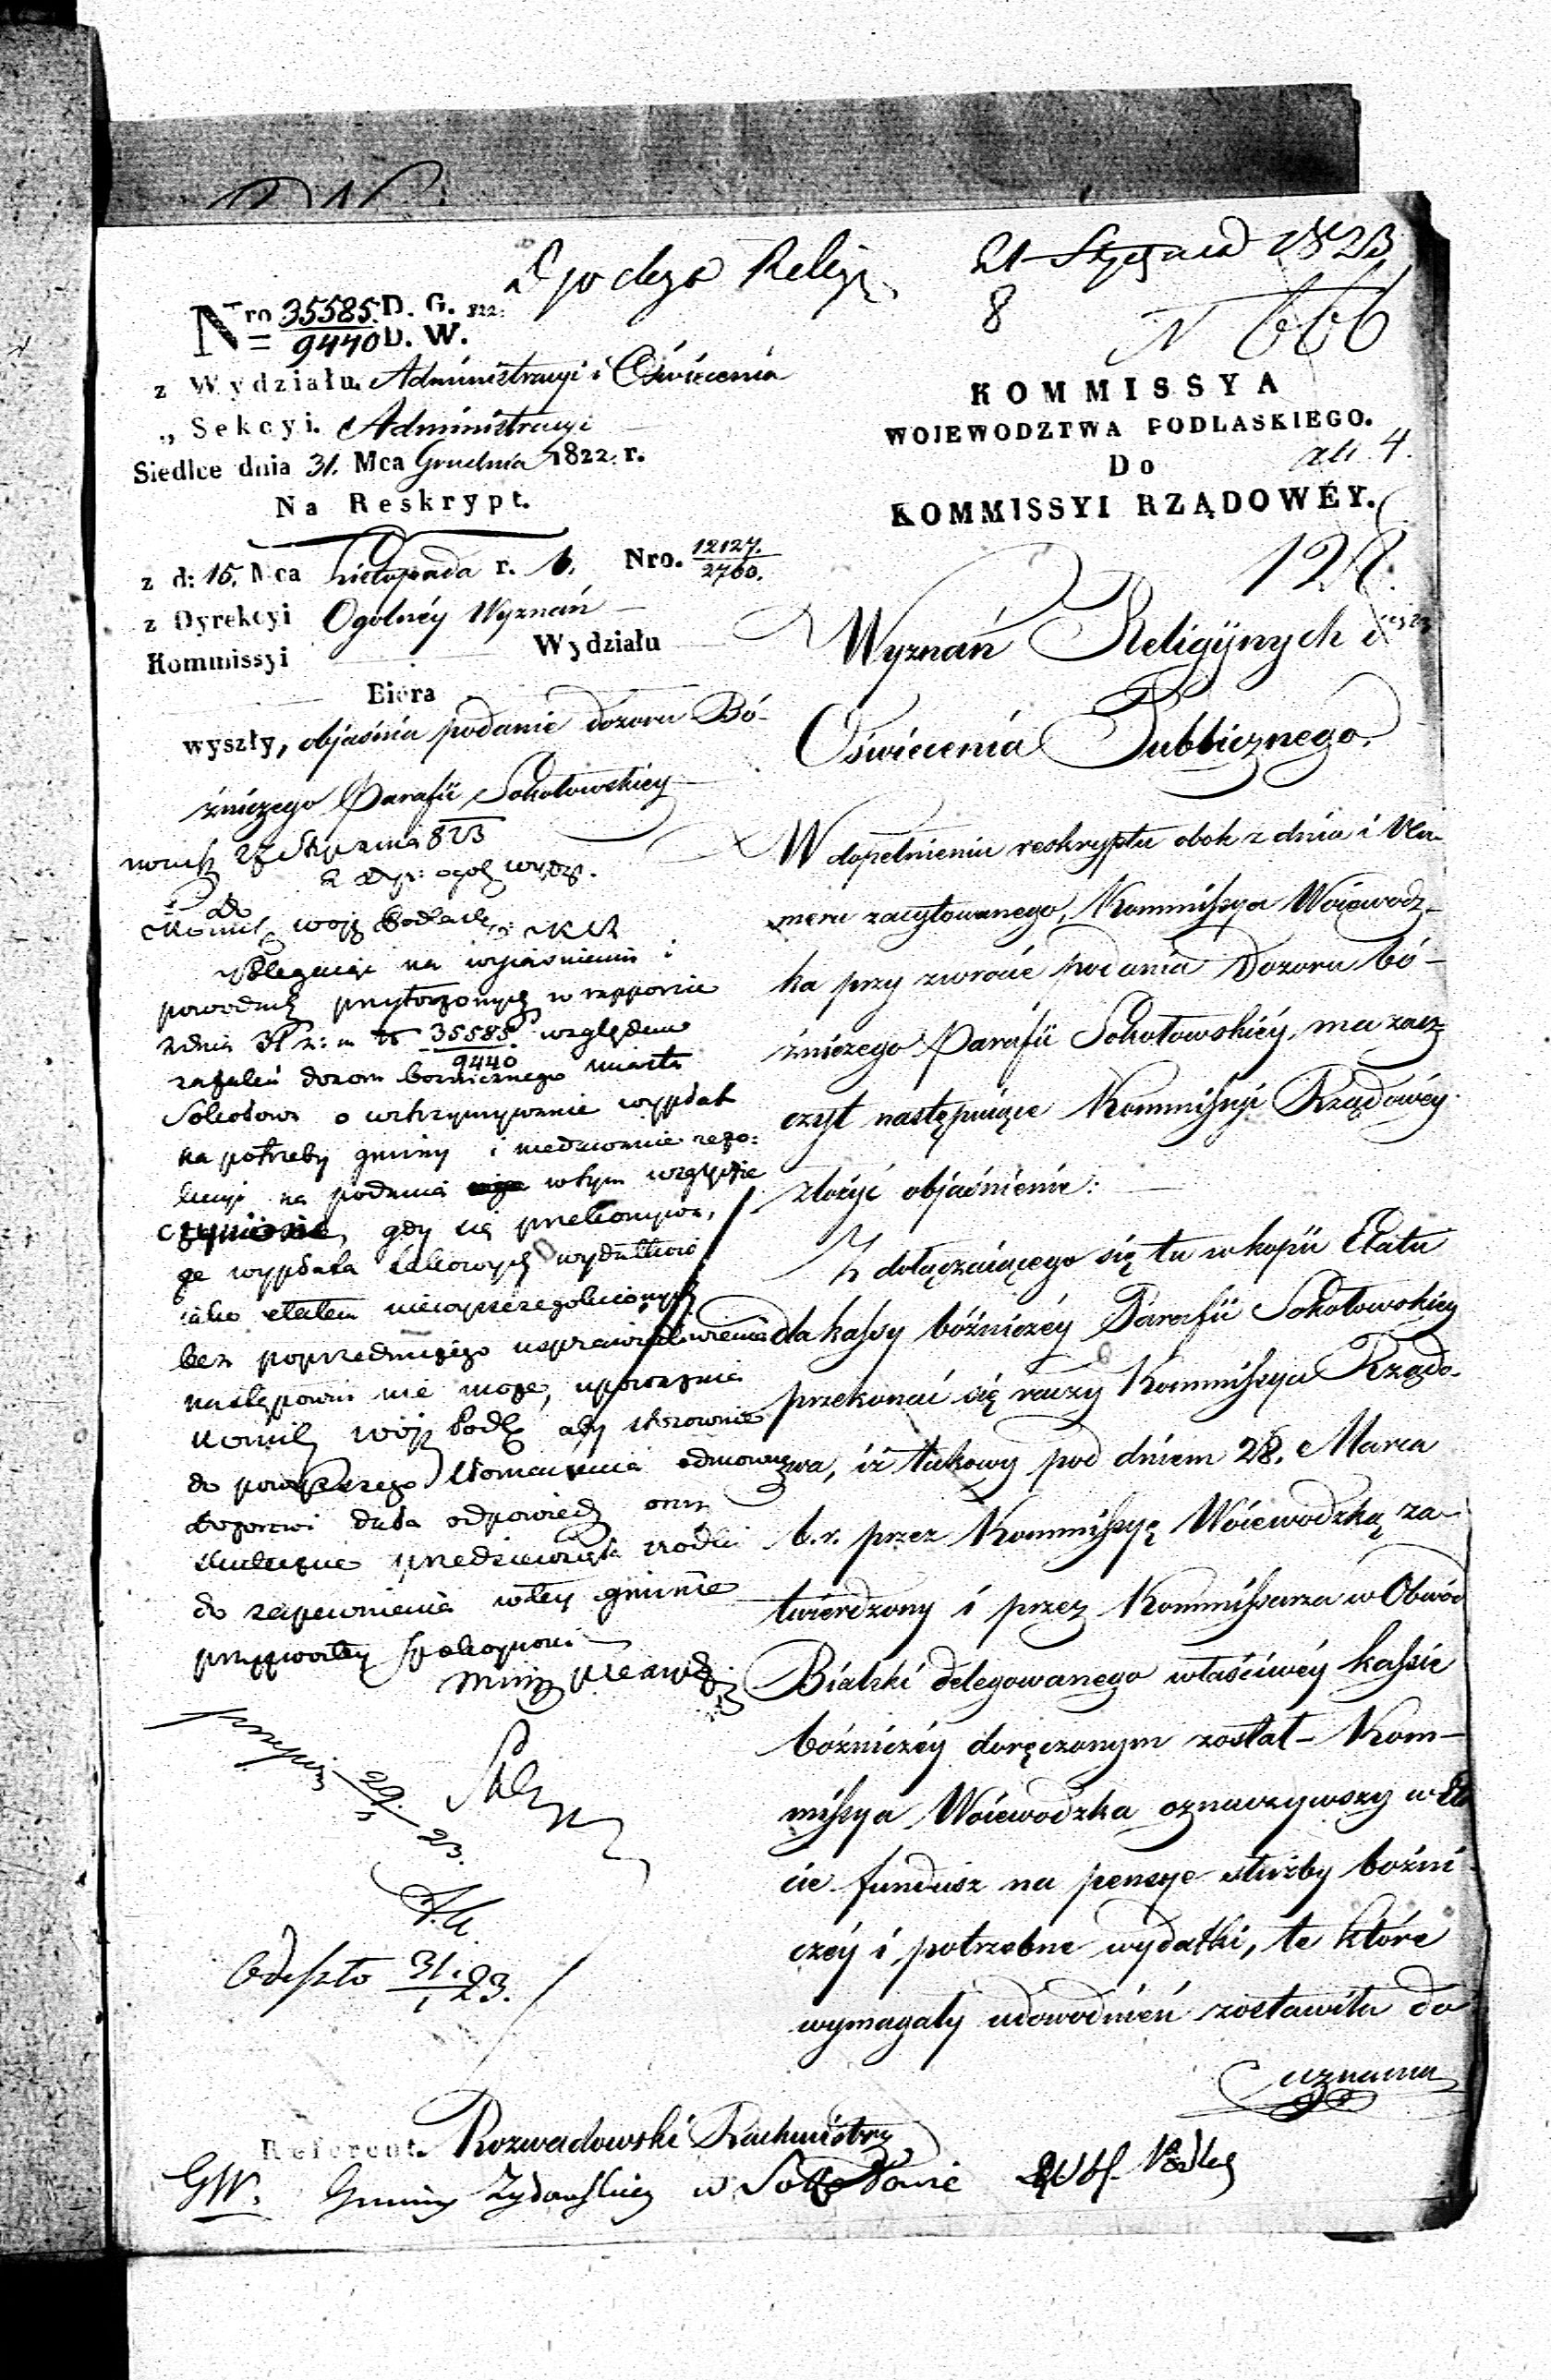 21 Stycznia 1823
8
N 666
Nro 35585. D. G. 822.
9440 D. W.
z Wydziału. Administracyi i Oświecenia
„ Sekcyi. Administracyi
Siedlce dnia 31. Mca Grudnia 1822. r.
Na Reskrypt.
z d: 15. Mca Listopada r. b. Nro. 12127.
2760.
z Dyrekcyi Ogolnéy Wyznań
Kommissyi Wydziału
Biora
wyszły, objaśnia podanie dozoru Bó-
źniczego Parafii Sokołowskiey
KOMMISSYA
WOJEWODZTWA PODLASKIEGO.
Do
KOMMISSYI RZĄDOWÉY.
128.
Wyznań Religijnych i
Oświecenia Publicznego.
W dopełnieniu reskryptu obok z dnia i Nu-
meru zacytowanego, Kommissya Woiewodz-
ka przy zwrocie podania Dozoru bó-
źniczego Parafii Sokołowskiéy, ma zasz-
czyt następuiące Kommissyi Rządowéy
złożyć objaśnienie:
Z dołączaiącego się tu w kopii Etatu
dla kassy bóźniczéy Parafii Sokołowskiey
przekonać się raczy Kommissya Rządo-
wa, iż takowy pod dniem 28. Marca
b. r. przez Kommissyę Woiewodzką za-
twierdzony i przez Kommissarza w Obwód
Bialski delegowanego właściwéy kassie
boźniczéy doręczonym został – Kom-
missya Woiewodzka oznaczywszy w Eta
cie fundusz na pensye służby boźni-
czéy i potrzebne wydatki, te które
wymagały udowodnień zostawiła do
uznania
27 Stycznia 823
do
Kommis. wojew. Podlask.
Polegaiąc na wyiaśnieniu i
powodach przytoczonych w rapporcie
z dnia 31 z: m N 35585 względem
9440
zażaleń dozoru bożniczego miasta
Sokołowa o wstrzymywanie wypłat
na potrzeby gminy i niedawanie rezo-
lucyi na podania w tym względzie
czynione, gdy się przekonywa,
że wypłata takowych wydatków
iako etatem niewyszczegolnionych
bez poprzedniego usprawiedliwienia
następować nie może, upoważnia
Kommis. wojew. Podl. aby stosownie
do powyższego tłomaczenia odmowną
dozorowi dała odpowiedź oraz
skuteczne przedsięwzięła środki
do zapewnienia w tey gminie
przyzwoitey spokoyności
29.
1 23.
Odeszło 31.
1 23.
Referent. Rozwadowski Rachmistrz
GW. Gminy Żydowskiey w Sokołowie